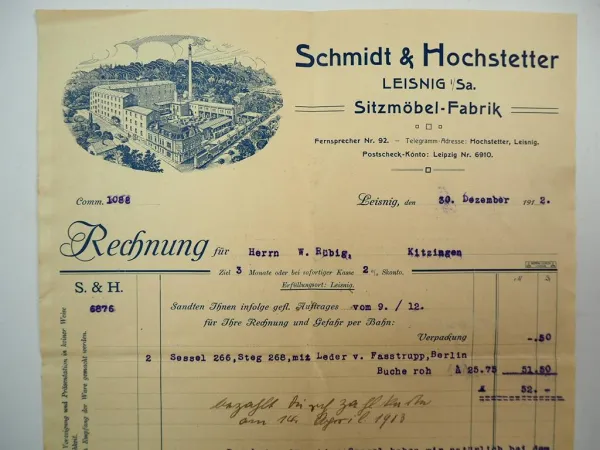 Schmidt & Hochstetter
LEISNIG i/Sa.
Sitzmöbel-Fabrik
Fernsprecher Nr. 92. — Telegramm-Adresse: Hochstetter, Leisnig.
Postscheck-Konto: Leipzig Nr. 6910.
Comm. 1088
Leisnig, den 30. Dezember 1912.
Rechnung für Herrn W. Rübig, Kitzingen
Ziel 3 Monate oder bei sofortiger Kasse 2% Skonto.
Erfüllungsort: Leisnig.
S. & H.
6876
Sandten Ihnen infolge gefl. Auftrages vom 9./12.
für Ihre Rechnung und Gefahr per Bahn:
Verpackung -.50
2 Sessel 266, Steg 268, mit Leder v. Fasstrupp, Berlin
Buche roh à 25.75 51.50
52.-
bezahlt durch Zahlkarte
am 14. April 1913